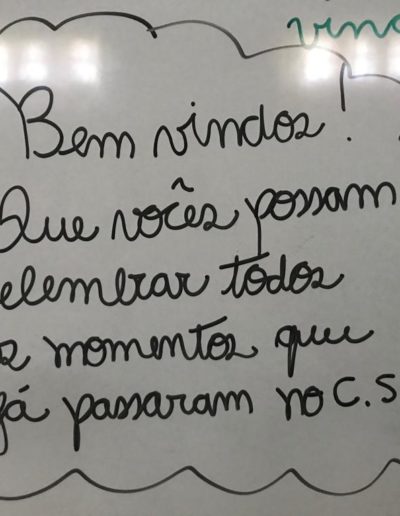 vind
Bem vindos!
Que vocês possam
elembrar todos
s momentos que
já passaram no C.S